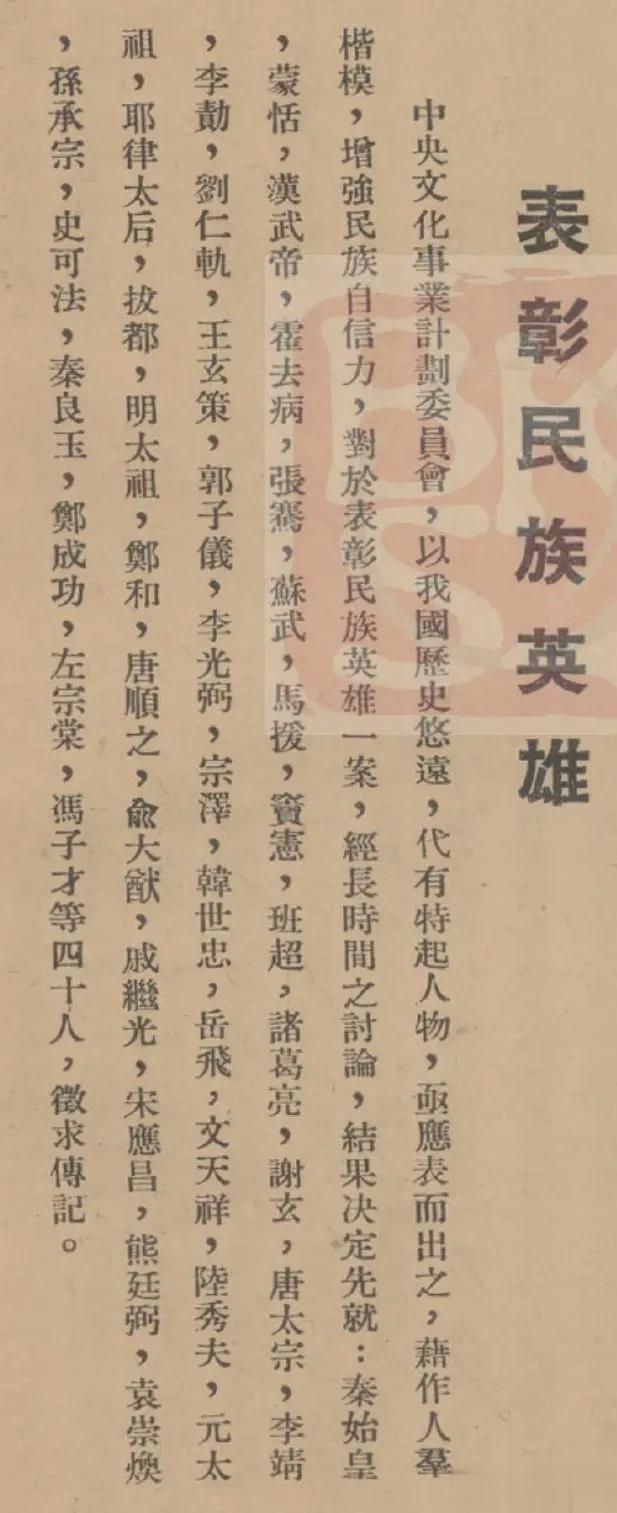 表彰民族英雄
中央文化事業計劃委員會，以我國歷史悠遠，代有特起人物，亟應表而出之，藉作人羣
楷模，增強民族自信力，對於表彰民族英雄一案，經長時間之討論，結果決定先就：秦始皇
，蒙恬，漢武帝，霍去病，張騫，蘇武，馬援，竇憲，班超，諸葛亮，謝玄，唐太宗，李靖
，李勣，劉仁軌，王玄策，郭子儀，李光弼，宗澤，韓世忠，岳飛，文天祥，陸秀夫，元太
祖，耶律太后，拔都，明太祖，鄭和，唐順之，俞大猷，戚繼光，宋應昌，熊廷弼，袁崇煥
，孫承宗，史可法，秦良玉，鄭成功，左宗棠，馮子才等四十人，徵求傳記。